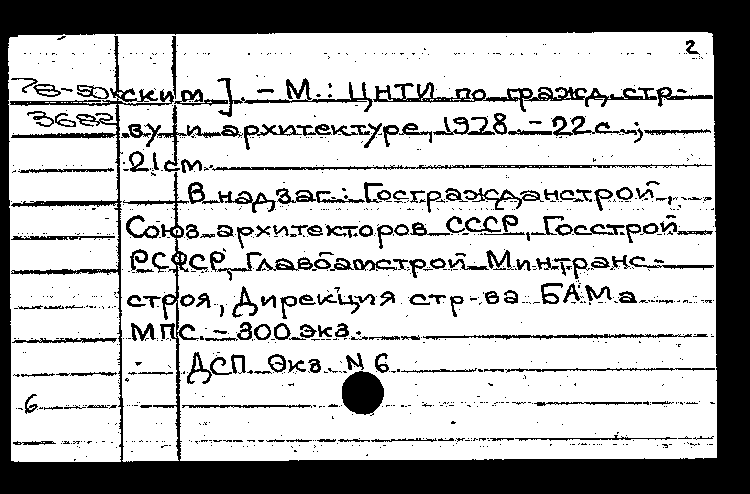 2
78-50кским]. – М.: ЦНТИ по гражд. стр-
3682 ву и архитектуре, 1978. – 22 с.;
21 см.
В надзаг.: Госгражданстрой,
Союз архитекторов СССР, Госстрой
РСФСР, Главбамстрой Минтранс-
строя, Дирекция стр-ва БАМа
МПС. – 300 экз.
ДСП Экз. N 6
6